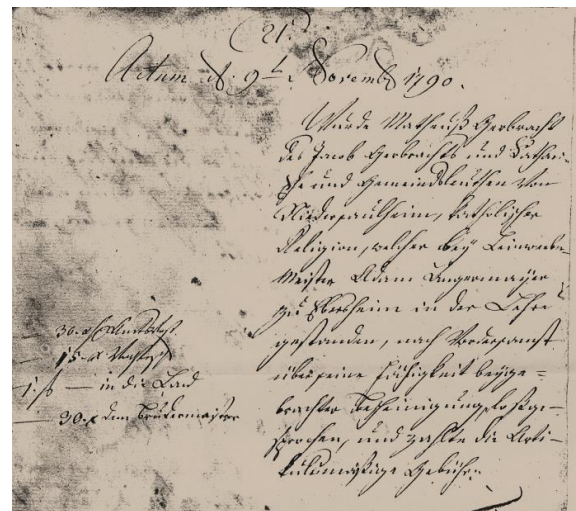 21.
Actum d. 9t. Novemb 1790.
Wurde Matheus Gerbracht
des Jacob Gerbrachts und Cathari-
und Gemeindsleuthen von
Niedersaulheim, Catholischer
Religion, welcher bey Leinweber
Meister Adam Angermayer
zu Ebersheim in der Lehre
gestanden, nach
über seine Fähigkeit beyge-
brachter Bescheinigung losge-
sprochen, und zahlte die Arti-
kulsmäßige Gebühr.
30 x
15 x
1 f — in die Lad
30 x dem Brudermaister